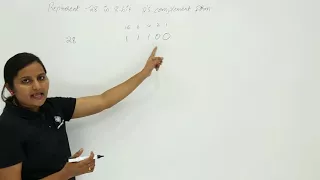 Represent -28 in 8 bit 2's complement form
16 8 4 2 1
28 1 1 1 0 0